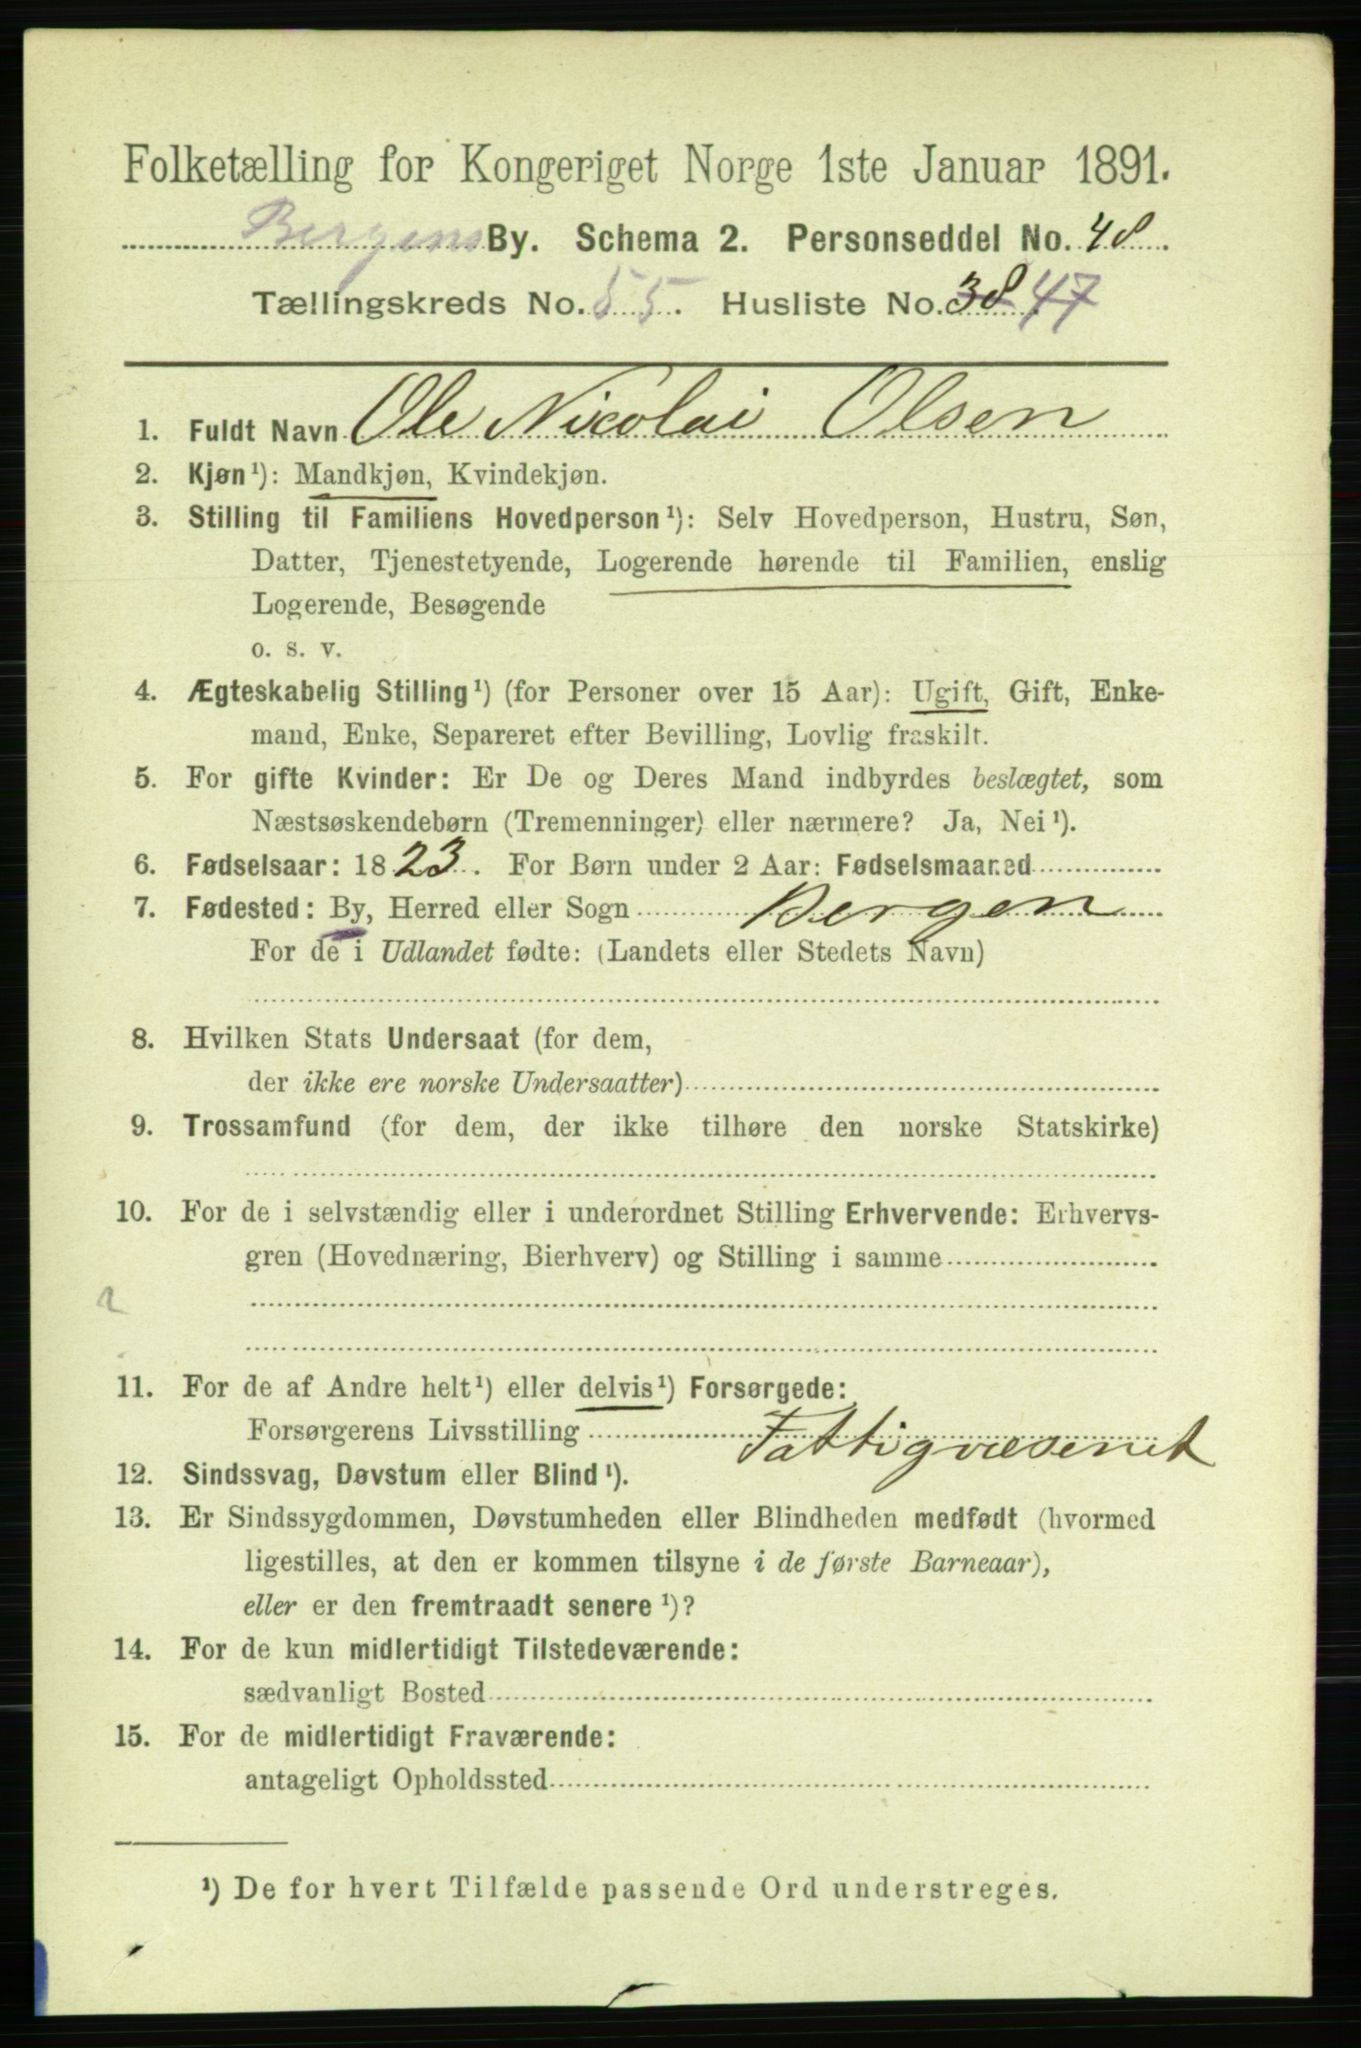 Folketælling for Kongeriget Norge 1ste Januar 1891.
Bergens By. Schema 2. Personseddel No. 48.
Tællingskreds No. 55. Husliste No. 38 47
1. Fuldt Navn Ole Nicolai Olsen
2. Kjøn¹): Mandkjøn, Kvindekjøn.
3. Stilling til Familiens Hovedperson¹): Selv Hovedperson, Hustru, Søn,
Datter, Tjenestetyende, Logerende hørende til Familien, enslig
Logerende, Besøgende
o. s. v.
4. Ægteskabelig Stilling¹) (for Personer over 15 Aar): Ugift, Gift, Enke-
mand, Enke, Separeret efter Bevilling, Lovlig fraskilt.
5. For gifte Kvinder: Er De og Deres Mand indbyrdes beslægtet, som
Næstsøskendebørn (Tremenninger) eller nærmere? Ja, Nei¹).
6. Fødselsaar: 1823. For Børn under 2 Aar: Fødselsmaaned
7. Fødested: By, Herred eller Sogn Bergen
For de i Udlandet fødte: (Landets eller Stedets Navn)
8. Hvilken Stats Undersaat (for dem,
der ikke ere norske Undersaatter)
9. Trossamfund (for dem, der ikke tilhøre den norske Statskirke)
10. For de i selvstændig eller i underordnet Stilling Erhvervende: Erhvervs-
gren (Hovednæring, Bierhverv) og Stilling i samme
2
11. For de af Andre helt¹) eller delvis¹) Forsørgede:
Forsørgerens Livsstilling Fattigvæsenet
12. Sindssvag, Døvstum eller Blind¹).
13. Er Sindssygdommen, Døvstumheden eller Blindheden medfødt (hvormed
ligestilles, at den er kommen tilsyne i de første Barneaar),
eller er den fremtraadt senere¹)?
14. For de kun midlertidigt Tilstedeværende:
sædvanligt Bosted
15. For de midlertidigt Fraværende:
antageligt Opholdssted
¹) De for hvert Tilfælde passende Ord understreges.